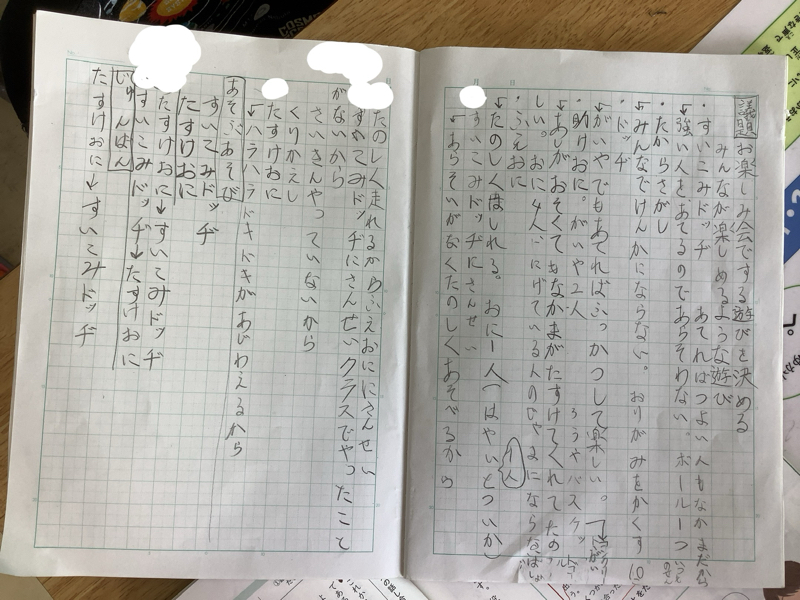 議題 お楽しみ会でする遊びを決める
みんなが楽しめるような遊び
・すいこみドッヂ あてればつよい人もなかまだから
←強い人をあてるのであらそわない。ボール一つ
・たからさがし
←みんなでけんかにならない。 おりがみをかくす
・ドッヂ
←がいやでもあてればふっかつして楽しい。
・助けおに。がいや2人 ろうやバスケット
←あしがおそくてもなかまがたすけてくれてたの
しい。 おに4人 にげている人のじゃまにならな
・ふえおに 1人
←たのしく走れる。 おに1人(はやいとついか)
すいこみドッヂにさんせい
←あらそいがなくたのしくあそべるから
たのしく走れるからふえおににさんせい
すいこみドッヂにさんせいクラスでやったこと
がないから
さいきんやっていないから
くりかえし
たすけおに
←ハラハラドキドキがあじわえるから
あそぶあそび
すいこみドッヂ
たすけおに
たすけおに→すいこみドッヂ
すいこみドッヂ→たすけおに
じゅんばん
たすけおに→すいこみドッヂ